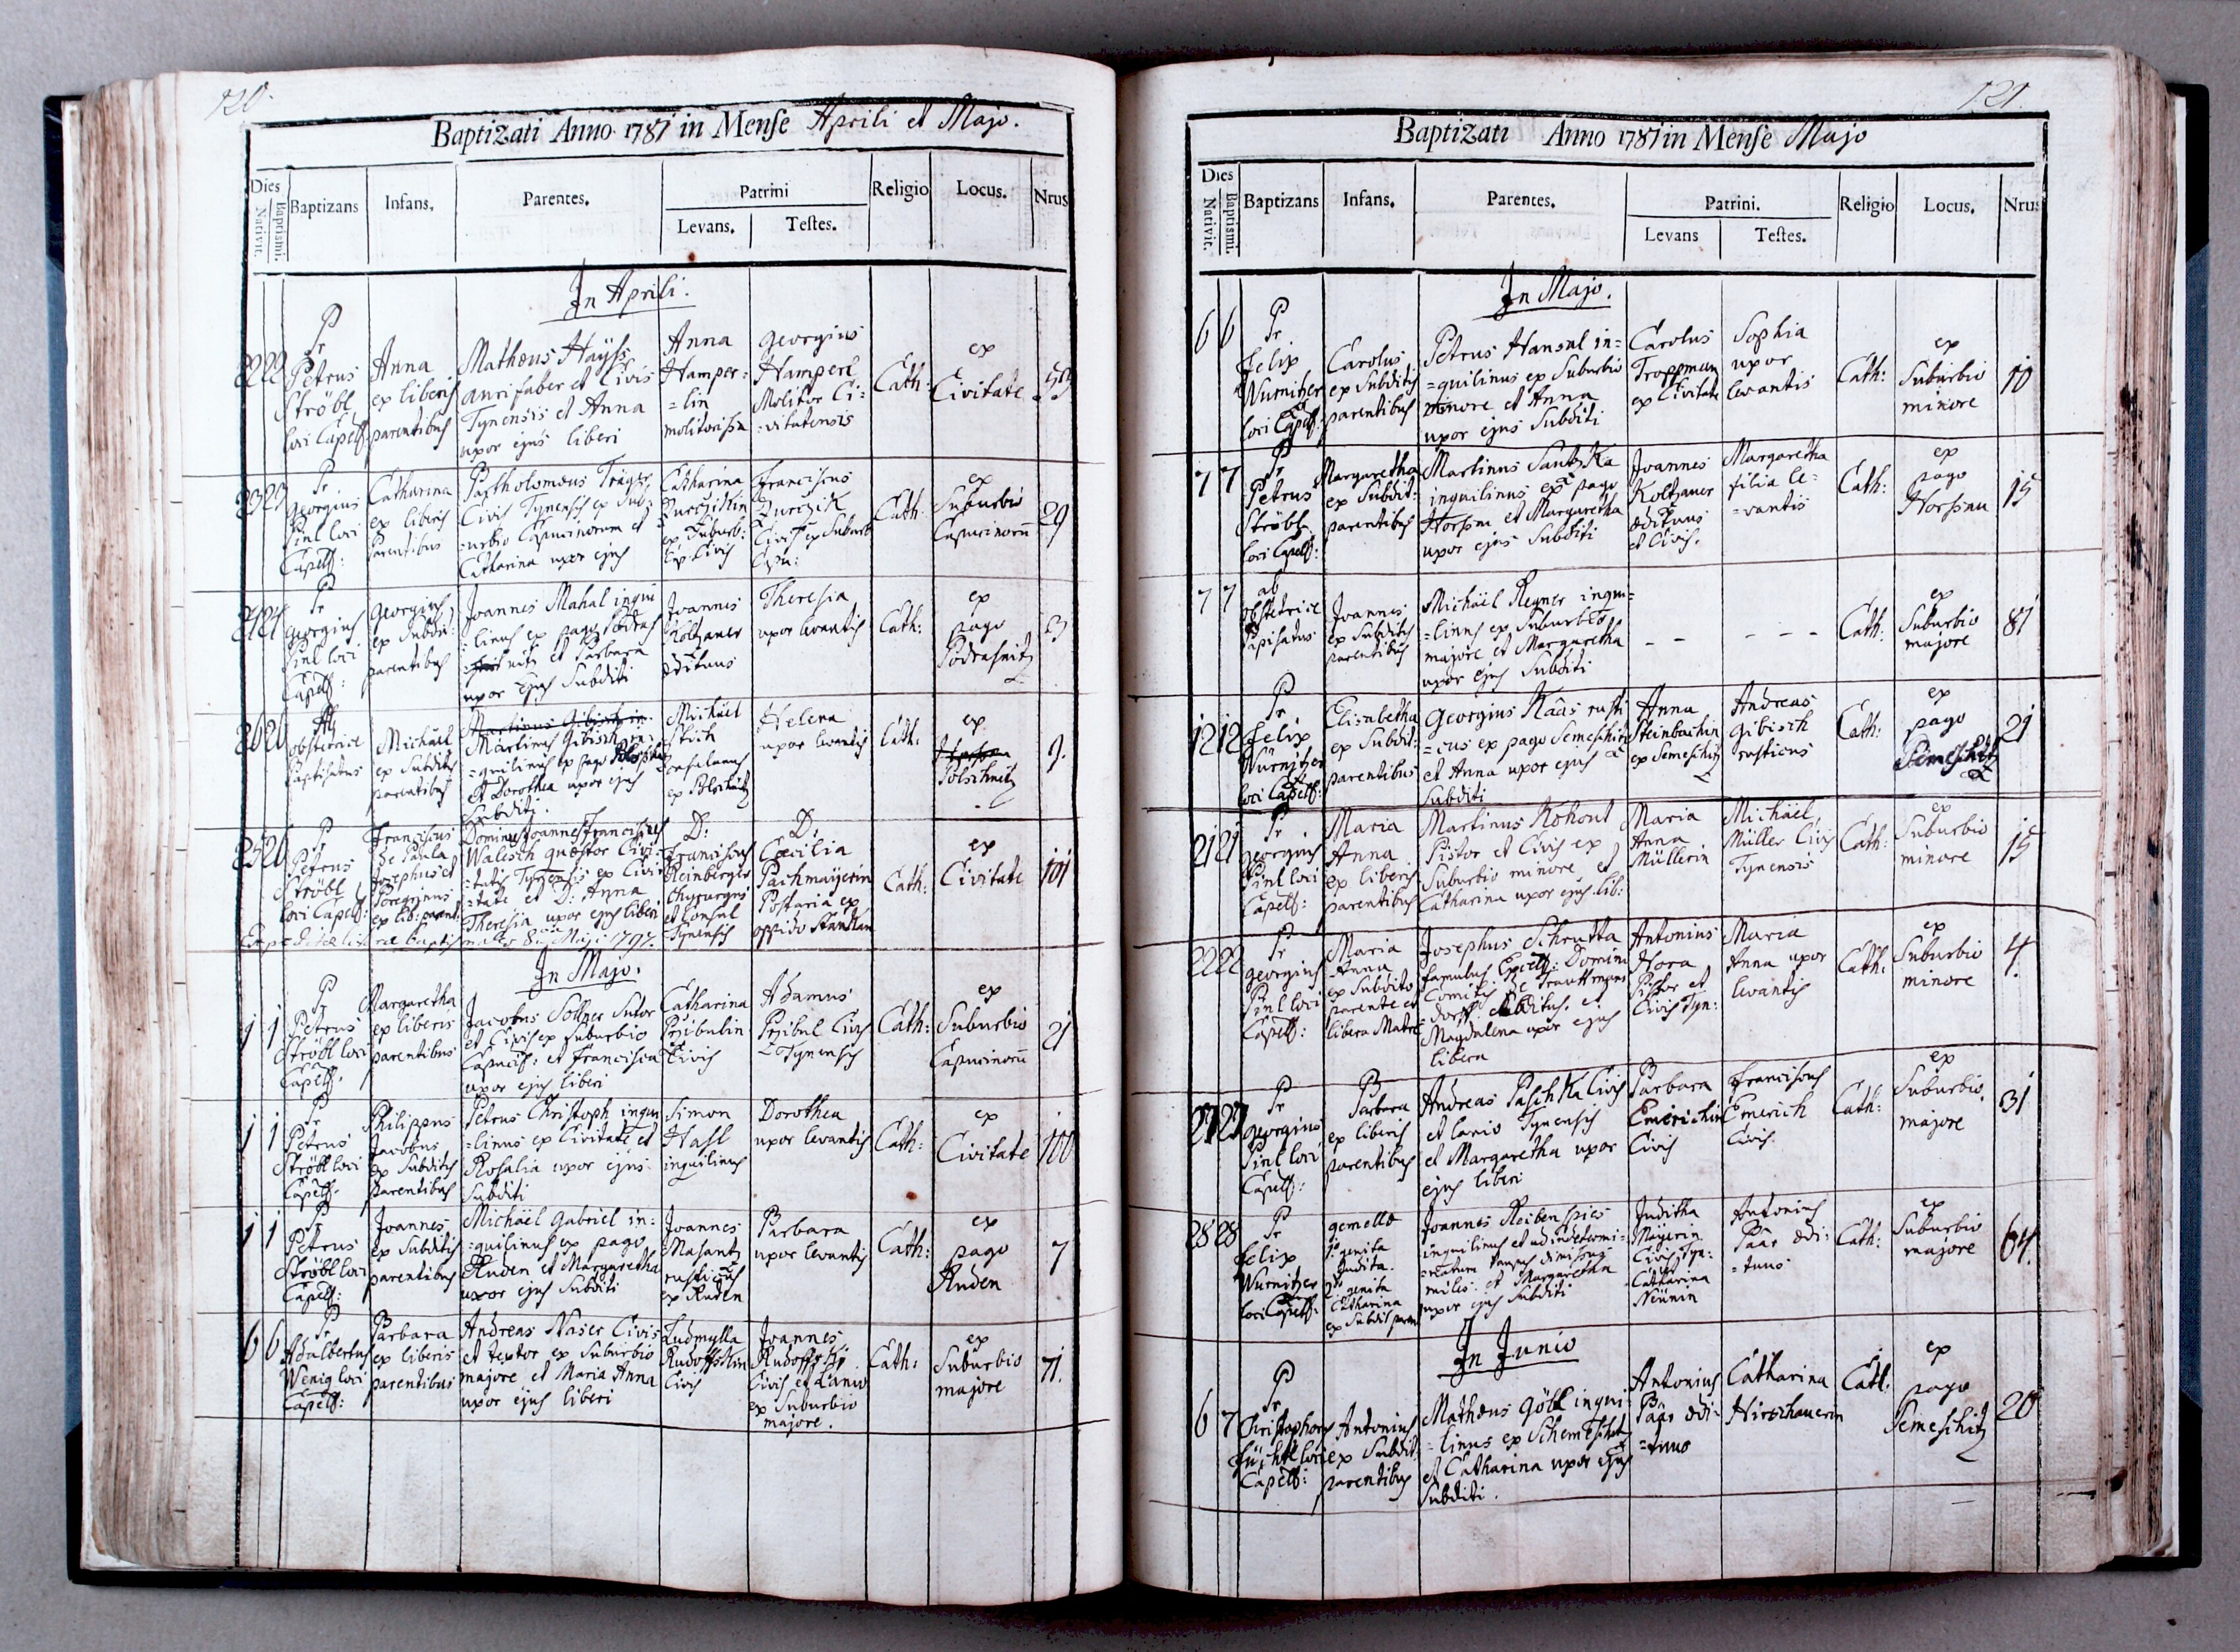 120.
Baptizati Anno 1781 in Mense Aprili et Majo.
Dies
Nativit.
Baptismi.
Baptizans
Infans.
Parentes.
Patrini
Levans.
Testes.
Religio
Locus.
Nrus
In Aprili.
22 22
Pr
Petrus
Ströbl
loci Capell:
Anna
ex liberis
parentibus
Matheus Hayß
aurifaber et Civis
Tynensis et Anna
uxor ejus liberi
Anna
Hamper=
=lin
molitorissa
Georgius
Hamperl
Molitor Ci=
=vitatensis
Cath:
ex
Civitate
59
23 23
Pr
Georgius
Pinl loci
Capell:
Catharina
ex liberis
Parentibus
Bartholomæus Träger
Civis Tynensis ex Sub=
=urbio Capucinorum et
Catharina uxor ejus
Catharina
Durczikin
ex Suburb:
Cap: Civis
Franciscus
Durczik
Civis ex Suburb
Capu:
Cath:
ex
Suburbio
Capucinorum
29
24 24
Pr
Georgius
Pinl loci
Capell:
Georgius
ex Subdi=
parentibus
Joannes Mahal inqui
=linus ex pago Podras
=nitz et Barbara
uxor Ejus Subditi
Joannes
Koltzauer
ædituus
Theresia
uxor levantis
Cath:
ex
pago
Podrasnitz
3
26 26
Ab
obstetrice
baptisatus
Michael
ex Subditis
parentibus
Martinus Gibisch in
Martinus Gibisch in=
=quilinus ex pago Polschnitz
et Dorothea uxor ejus
Subditi.
Michael
ex Polschnitz
Helena
uxor levantis
Cath:
ex
Polschnitz
9.
25 26
Pr
Petrus
Ströbl
loci Capell:
Franciscus
de Paula
Josephus et
Peregrinus
ex lib: parent:
Dominus Joannes Franciscus
Walisch quæstor Civi=
=tatis Tynensis ex Civi=
=tate et D: Anna
Theresia uxor ejus liberi
D:
Franciscus
Reinberger
Chyrurgus
et Consul
Tynensis
D:
Cæcilia
Pachmayerin
Postaria ex
oppido Stankau
Cath:
ex
Civitate
101
Expeditæ literæ baptis 8 Maji 1797.
In Majo.
1 1
Pr
Petrus
Ströbl loci
Capell.
Margaretha
ex liberis
parentibus
Jacobus Söllner Sutor
et Civis ex Suburbio
Capuci: et Francisca
uxor ejus liberi
Catharina
Pržibulin
Civis
Adamus
Pržibul Civis
Tynensis
Cath:
ex
Suburbio
Capucinorum
21
1 1
Pr
Petrus
Ströbl loci
Capell.
Philippus
Jacobus
ex Subditis
parentibus
Petrus Christoph inqui
=linus ex Civitate et
Rosalia uxor ejus
Subditi
Simon
Hasl
inquilinus
Dorothea
uxor levantis
Cath:
ex
Civitate
100
1 1
Pr
Petrus
Ströbl loci
Capell:
Joannes
ex Subditis
parentibus
Michael Gabriel in=
=quilinus ex pago
Ruden et Margaretha
uxor ejus Subditi
Joannes
Masantz
rusticus
ex Ruden
Barbara
uxor levantis
Cath:
ex
pago
Ruden
7
6 6
Pr
Adalbertus
Wenig loci
Capell:
Barbara
ex liberis
parentibus
Andreas Naser Civis
et textor ex Suburbio
majore et Maria Anna
uxor ejus liberi
Ludmylla
Rudoffskin
Civis
Joannes
Rudoffski
Civis et Lanio
ex Suburbio
majore.
Cath:
ex
Suburbio
majore
71.
121.
Baptizati Anno 1781 in Mense Majo
Dies
Nativit.
Baptismi.
Baptizans
Infans.
Parentes.
Patrini.
Levans
Testes.
Religio
Locus.
Nrus
In Majo.
6 6
Pr
Felix
Wurnitzer
loci Capell:
Carolus
ex Subditis
parentibus
Petrus Hansal in=
=quilinus ex Suburbio
minore et Anna
uxor ejus Subditi
Carolus
Troppman
ex Civitate
Sophia
uxor
levantis
Cath:
ex
Suburbio
minore
10
7 7
Pr
Petrus
Ströbl
loci Capell:
Margaretha
ex Subdit:
parentibus
Martinus Santzka
inquilinus ex pago
Horssau et Margaretha
uxor ejus Subditi
Joannes
Koltzauer
ædituus
et Civis.
Margaretha
filia le=
=vantis
Cath:
ex
pago
Horssau
15
7 7
ab
obstetrice
bapisatus
Joannes
ex Subditis
parentibus
Michäel Regner inqui=
=linus ex Suburbio
majore et Margaretha
uxor ejus Subditi
–
– – –
Cath:
ex
Suburbio
majore
81
12 12
Pr
Felix
Würnitzer
loci Capell:
Elisabetha
ex Subdit:
parentibus
Georgius Kaas rusti
=cus ex pago Semeschitz
et Anna uxor ejus
Subditi
Anna
Steinbachin
ex Semeschitz
Andreas
Gibisch
rusticus
Cath:
ex
pago
Semeschitz
21
21 21
Pr
Georgius
Pinl loci
Capell:
Maria
Anna
ex liberis
parentibus
Martinus Kohout
Pistor et Civis ex
Suburbio minore et
Catharina uxor ejus lib:
Maria
Anna
Müllerin
Michael
Müller Civis
Tynensis
Cath:
ex
Suburbio
minore
15
22 22
Pr
Georgius
Pinl loci
Capell:
Maria
Anna
ex Subdito
parente et
libera Matre
Josephus Schrutta
famulus Excell: Domini
Comitis de Trauttmans
dorff Subditus. et
Magdalena uxor ejus
libera
Antonius
Hora
Pistor et
Civis Tyn:
Maria
Anna uxor
levantis
Cath:
ex
Suburbio
minore
4.
27 27
Pr
Georgius
Pinl loci
Capell:
Barbara
ex liberis
parentibus
Andreas Paschka Civis
et lanio Tynensis
et Margaretha uxor
ejus liberi
Barbara
Emerichin
Civis
Franciscus
Emerich
Civis.
Cath:
ex
Suburbio
majore
31
28 28
Pr
Felix
Wurnitzer
loci Capell:
gemellæ
1o genita
Judita.
2do genita
Catharina
ex Subdit paren
Joannes Reibenspies
inquilinus et ad indetermi=
=natum tempus dimissus
miles. et Margaretha
uxor ejus Subditi
Juditha
Mayerin
Civis Tyn:
Catharina
Neünin
Antonius
Päar ædi=
=tuus
Cath:
ex
Suburbio
majore
64.
In Junio
6 7
Pr
Christophorus
loci
Capell:
Antonius
ex Subdit:
parentibus
Matheus Göbl inqui
=linus ex Schemeschitz
et Catharina uxor ejus
Subditi.
Antonius
Päar ædi=
=tuus
Catharina
Hirschauerin
Cath:
ex
pago
Semeschitz
20